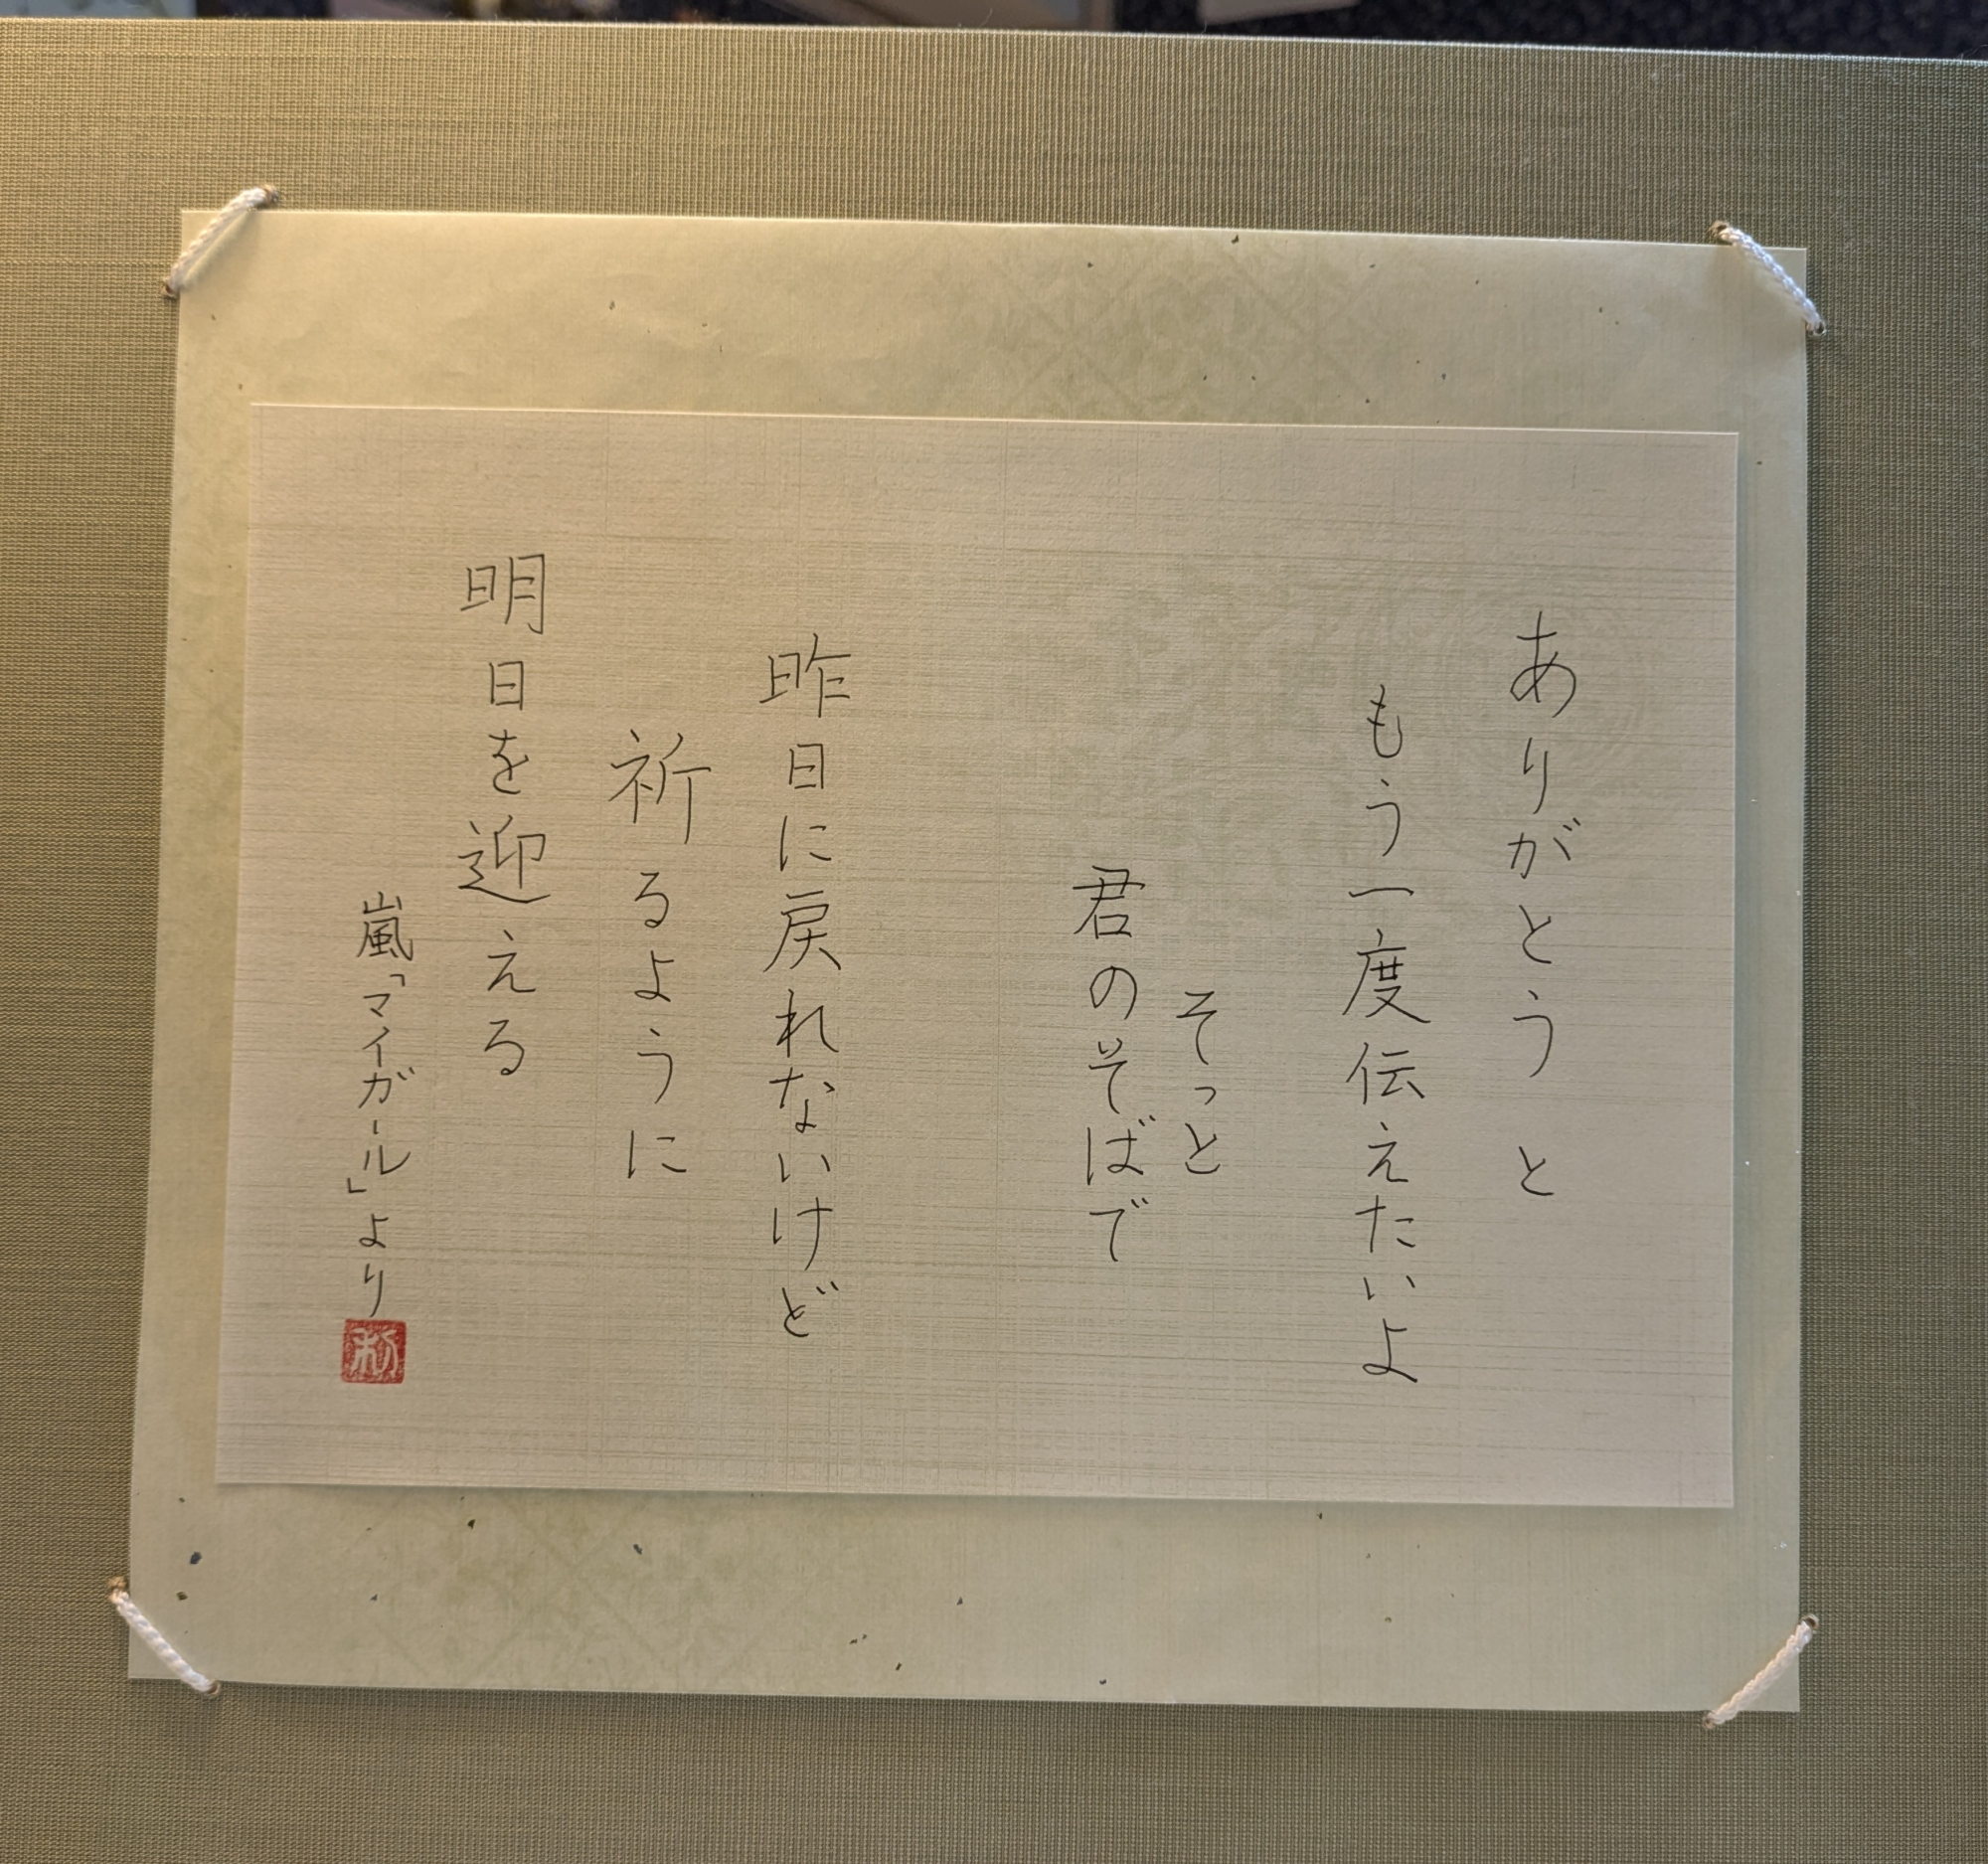 ありがとうと
もう一度伝えたいよ
そっと
君のそばで
昨日に戻れないけど
祈るように
明日を迎える
嵐「マイガール」より